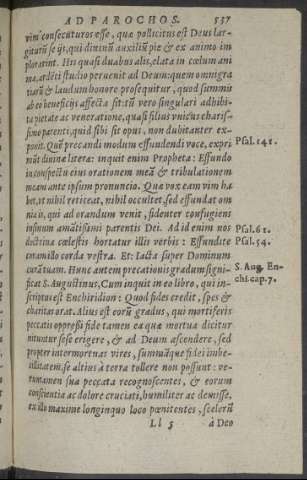 AD PAROCHOS. 537
vim consecuturos esse, quæ pollicitus est Deus lar-
giturũ se ijs, qui diuinũ auxiliũ piè & ex animo im
plorarint. His quasi duabus alis, elata in cœlum ani
ma, ardẽti studio peruenit ad Deum: quem omni gra
tiarũ & laudum honore prosequitur, quod summis
ab eo beneficijs affecta sit: tũ verò singulari adhibi-
ta pietate ac veneratione, quasi filius vnicus charis-
simo parenti, quid sibi sit opus, non dubitanter ex-
ponit. Quẽ precandi modum effundendi voce, expri Psal. 141.
mũt diuinæ literæ: inquit enim Propheta: Effundo
in conspectu eius orationem meã & tribulationem
meam ante ipsum pronuncio. Quæ vox eam vim ha
bet, vt nihil reticeat, nihil occultet, sed effundat om
nia is, qui ad orandum venit, fidenter confugiens
in sinum amãtissimi parentis Dei. Ad id enim nos Psal. 61.
doctrina cœlestis hortatur illis verbis: Effundite Psal. 54.
coram illo corda vestra. Et: Iacta super Dominum
curã tuam. Hunc autem precationis gradum signi- S. Aug. En-
ficat S. Augustinus, Cum inquit in eo libro, qui in- chi. cap. 7.
scriptus est Enchiridion: Quod fides credit, spes &
charitas orat. Alius est eorũ gradus, qui mortiferis
peccatis oppressi fide tamen ea quæ mortua dicitur
nituntur sese erigere, & ad Deum ascendere, sed
propter intermortuas vires, summãque fidei imbe-
cillitatem, se altius à terra tollere non possunt: ve-
rumtamen sua peccata recognoscentes, & eorum
conscientia ac dolore cruciati, humiliter ac demisse,
ex illo maximè longinquo loco pœnitentes, scelerũ
Ll 5 à Deo